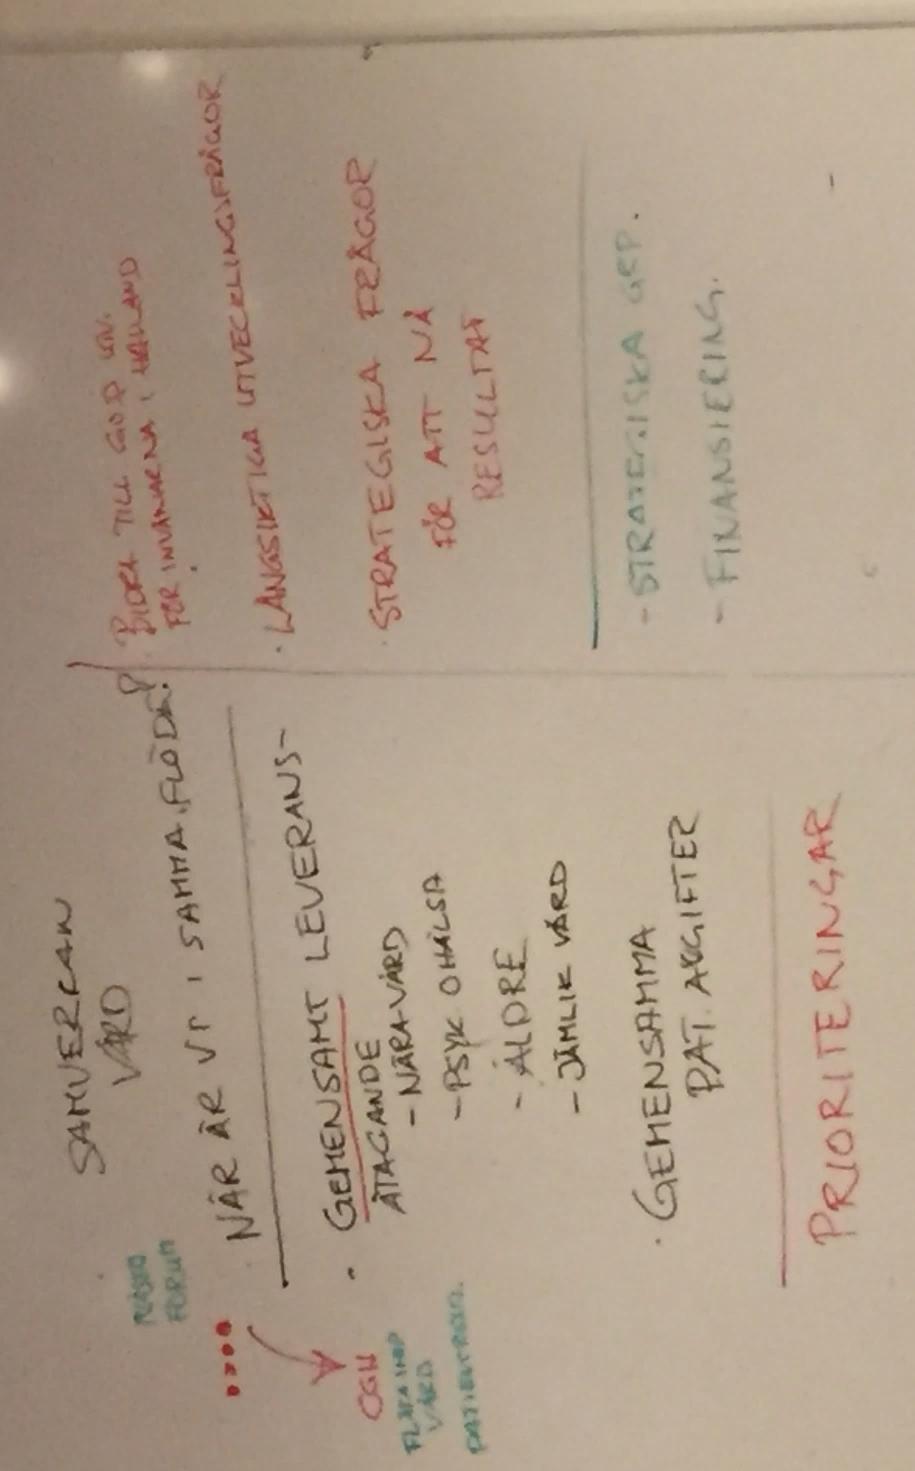 SAMVERCAN
VÅRD
NÄR ÄR VI I SAMMA FLÖDE?
· GEMENSAMT LEVERANS-
ÅTAGANDE
- NÄRA VÅRD
- PSYK OHÄLSA
- ÄLDRE
- JÄMLIK VÅRD
· GEMENSAMMA
PAT. AVGIFTER
PRIORITERINGAR
FORUM
OCH
VÅRD
· BIDRA TILL GOD
FÖR INVÅNARNA I HALLAND
· LÅNGSIKTIGA UTVECKLINGSFRÅGOR
· STRATEGISKA FRÅGOR
FÖR ATT NÅ
RESULTAT
- STRATEGISKA GRP.
- FINANSIERING.